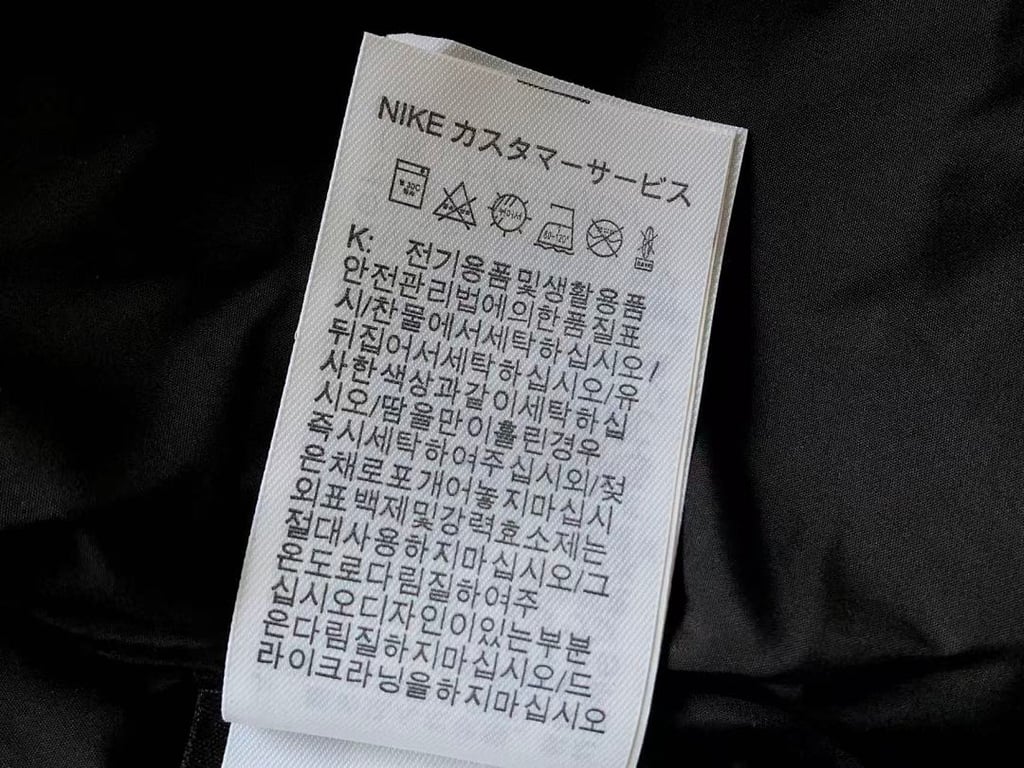 NIKE カスタマーサービス
K: 전기용품및생활용품
안전관리법에의한품질표
시/찬물에서세탁하십시오/
뒤집어서세탁하십시오/유
사한색상과같이세탁하십
시오/땀을만이흘린경우
즉시세탁하여주십시외/젖
은채로포개어놓지마십시
외표백제및강력효소제는
절대사용하지마십시오/그
온도로다림질하여주
십시오디자인이있는부분
은다림질하지마십시오/드
라이크라닝을하지마십시오